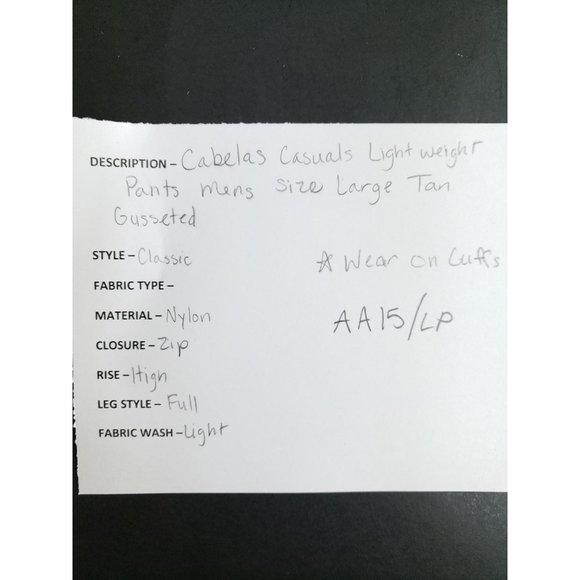 DESCRIPTION – Cabelas Casuals Lightweight
Pants mens Size Large Tan
Gusseted
STYLE – Classic
☆ Wear on Cuffs
FABRIC TYPE –
MATERIAL – Nylon
AA15/LP
CLOSURE – Zip
RISE – High
LEG STYLE – Full
FABRIC WASH – Light